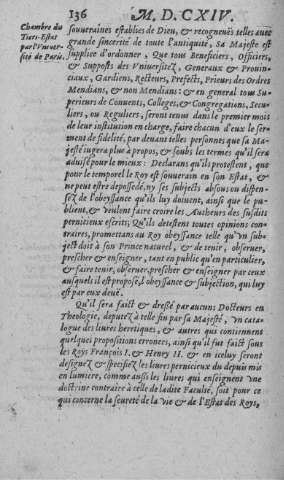 136 M. D. CXIV.
Chambre du
Tiers-Estat
par l'Vniuer-
sité de Paris.
souueraines establies de Dieu, & recogneuës telles auec
grande sincerité de toute l'antiquité, Sa Majesté est
suppliee d'ordonner, Que tous Beneficiers, Officiers,
& Supposts des Vniuersitez, Generaux & Prouin-
ciaux, Gardiens, Recteurs, Prefects, Prieurs des Ordres
Mendians, & non Mendians: & en general tous Su-
perieurs de Conuents, Colleges, & Congregations, Secu-
liers, ou Reguliers, seront tenus dans le premier mois
de leur institution en charge, faire chacun d'eux le ser-
ment de fidelité, par deuant telles personnes que sa Ma-
jesté iugera plus à propos, & soubs les termes qu'il sera
aduisé pour le mieux: Declarans qu'ils protestent, que
pour le temporel le Roy est souuerain en son Estat, &
ne peut estre depossedé, ny ses subjects absous ou dispen-
sez de l'obeyssance qu'ils luy doiuent, ainsi que le pu-
blient, & veulent faire croire les Autheurs des susdits
pernicieux escrits; Qu'ils detestent toutes opinions con-
traires, promettans au Roy obeyssance telle qu'vn sub-
ject doit à son Prince naturel, & de tenir, obseruer,
prescher & enseigner, tant en public qu'en particulier,
& faire tenir, obseruer, prescher & enseigner par ceux
ausquels il est proposé, l'obeyssance & subjection, qui luy
est par eux deuë.
Qu'il sera faict & dressé par aucuns Docteurs en
Theologie, deputez à telle fin par sa Majesté, vn cata-
logue des liures heretiques, & autres qui contiennent
quelques propositions erronees, ainsi qu'il fut faict sous
les Roys François I. & Henry II. & en iceluy seront
designez & specifiez les liures pernicieux du depuis mis
en lumiere, comme aussi les liures qui enseignent vne
doctrine contraire à celle de ladite Faculté, soit pour ce
qui concerne la seureté de la vie & de l'Estat des Roys,